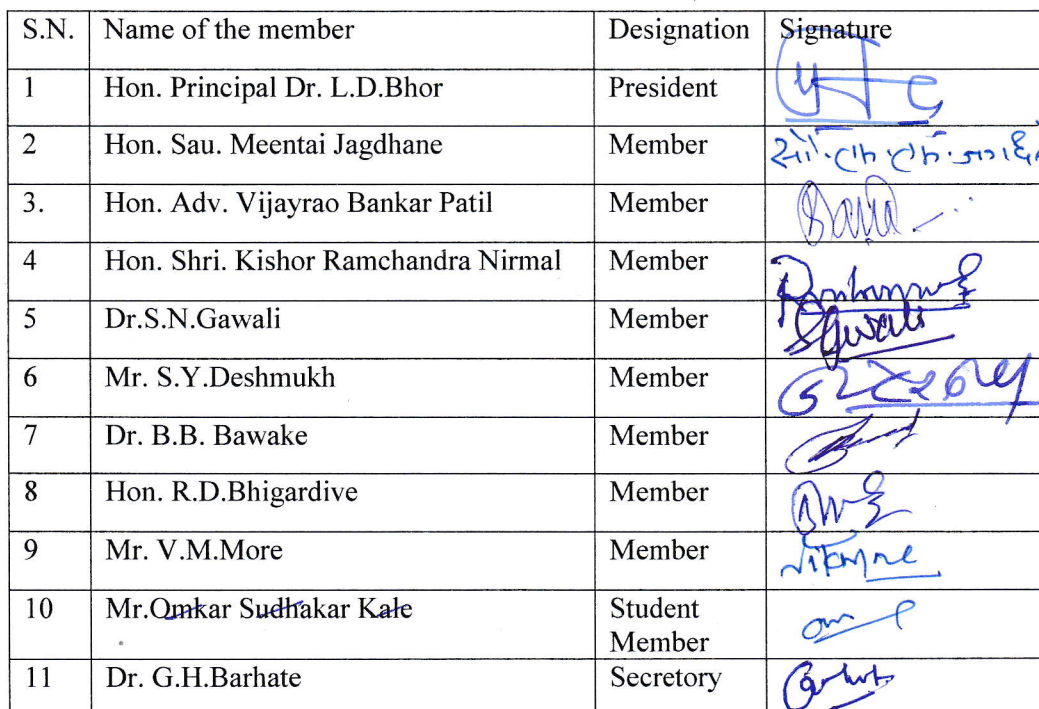 S.N. Name of the member Designation Signature
1 Hon. Principal Dr. L.D.Bhor President
2 Hon. Sau. Meentai Jagdhane Member
3. Hon. Adv. Vijayrao Bankar Patil Member
4 Hon. Shri. Kishor Ramchandra Nirmal Member
5 Dr.S.N.Gawali Member Sgwali
6 Mr. S.Y.Deshmukh Member
7 Dr. B.B. Bawake Member
8 Hon. R.D.Bhigardive Member
9 Mr. V.M.More Member
10 Mr.Omkar Sudhakar Kale Student
Member
11 Dr. G.H.Barhate Secretory